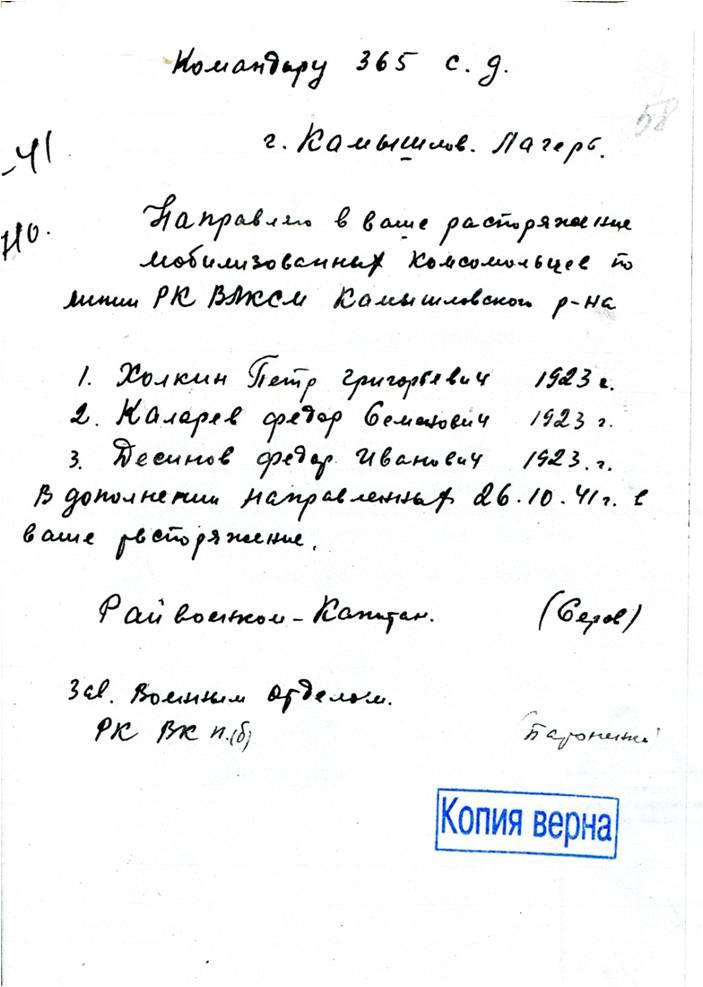 Командиру 365 с. д.
58
г. Камышлов. Лагерь.
-41
но.
Направляю в ваше распоряжение
мобилизованных комсомольцев по
линии РК ВЛКСМ Камышловского р-на
1. Холкин Петр Григорьевич 1923 г.
2. Каларев Федор Семенович 1923 г.
3. Десинов Федор Иванович 1923. г.
В дополнении направленных 26.10.41 г. в
ваше распоряжение.
Райвоенком - Капитан. (Серов)
Зав. Военным отделом.
РК ВК п.(б)
Копия верна